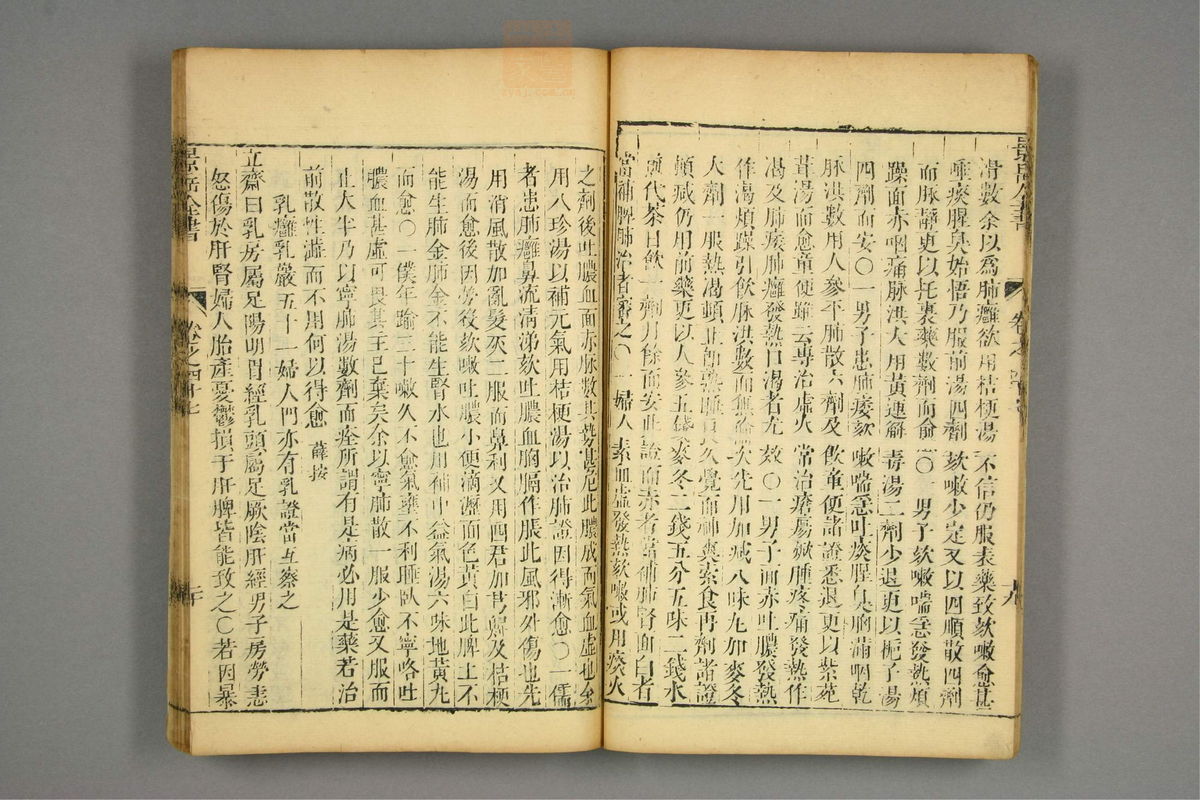 滑數余以爲肺癰欲用桔梗湯不信仍服表藥致欬嗽愈甚
唾痰腥臭始悟乃服前湯四劑欬嗽少定又以四順散四劑
而脉靜更以托裏藥數劑而愈〇一男子欬嗽喘急發熱煩
躁面赤咽痛脉洪大用黃連解毒湯二劑少退更以梔子湯
四劑而安〇一男子患肺痿欬嗽喘急吐痰腥臭胸滿咽乾
脉洪數用人參平肺散六劑及飲童便諸證悉退更以紫菀
茸湯而愈童便雖云專治虛火常治瘡瘍焮腫疼痛發熱作
渴及肺痿肺癰發熱口渴者尤效〇一男子面赤吐膿發熱
作渴煩躁引飲脉洪數而無倫次先用加减八味丸加麥冬
大劑一服熱渴頓止卽熟睡良久覺而神爽索食再劑諸證
頓减仍用前藥更以人參五錢麥冬二錢五分五味二錢水
煎代茶日飲一劑月餘而安此證面赤者當補肺腎面白者
當補脾肺治者審之〇一婦人素血虛發熱欬嗽或用痰火
之劑後吐膿血面赤脉數其勢甚危此膿成而氣血虛也余
用八珍湯以補元氣用桔梗湯以治肺證因得漸愈〇一儒
者患肺癰鼻流清涕欬吐膿血胸膈作脹此風邪外傷也先
用消風散加亂髮灰二服而鼻利又用四君加芎歸及桔梗
湯而愈後因勞役欬嗽吐膿小便滴瀝面色黃白此脾土不
能生肺金肺金不能生腎水也用補中益氣湯六味地黃丸
而愈〇一僕年踰三十嗽久不愈氣壅不利睡臥不寧咯吐
膿血甚虛可畏其主已棄矣余以寧肺散一服少愈又服而
止大半乃以寧肺湯數劑而痊所謂有是病必用是藥若治
前散性澁而不用何以得愈 薛按
乳癰乳巖五十一婦人門亦有乳證當互察之
立齋曰乳房屬足陽明胃經乳頭屬足厥陰肝經男子房勞恚
怒傷於肝腎婦人胎產憂鬱損于肝脾皆能致之〇若因暴
景岳全書
卷之四十七